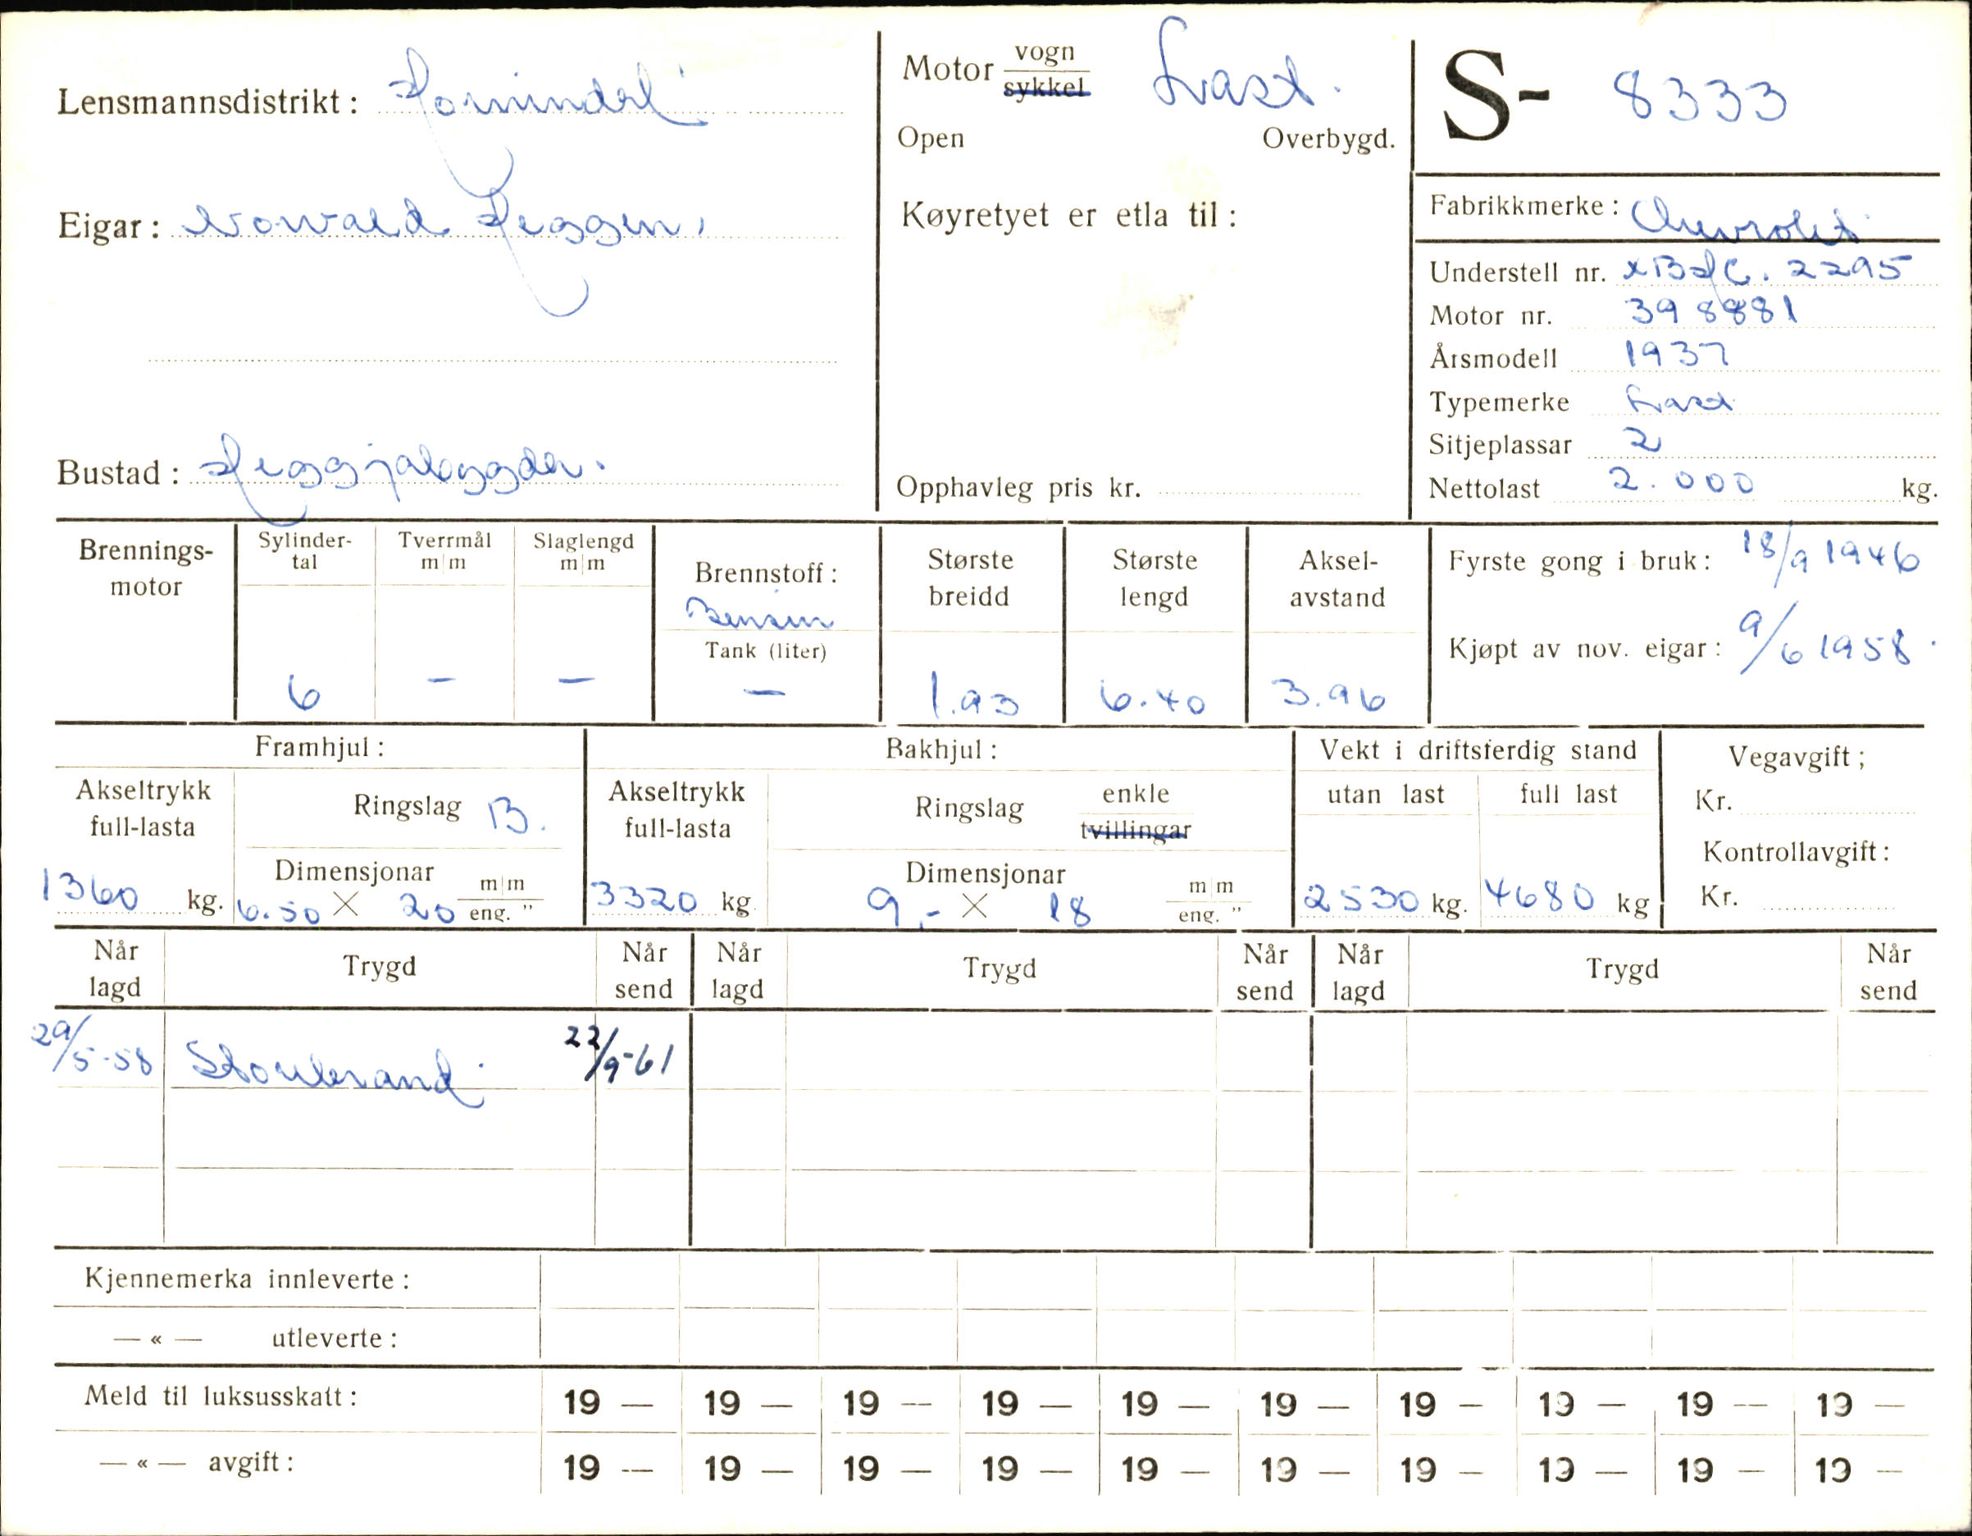 Lensmannsdistrikt: Hornindal
Eigar: Norvald Heggen,
Bustad: Heggjabygda.
Motor vogn
sykkel
Last.
Open Overbygd.
Køyretyet er etla til:
Opphavleg pris kr.
S- 8333
Fabrikkmerke: Chevrolet
Understell nr. xBHC. 2295
Motor nr. 398881
Årsmodell 1937
Typemerke Last
Sitjeplassar 2
Nettolast 2.000 kg.
Brennings-
motor
Sylinder-
tal
6
Tverrmål
m|m
—
Slaglengd
m|m
—
Brennstoff:
Bensin
Tank (liter)
—
Største
breidd
1.93
Største
lengd
6.40
Aksel-
avstand
3.96
Fyrste gong i bruk: 18/9 1946
Kjøpt av nov. eigar: 9/6 1958.
Framhjul:
Akseltrykk
full-lasta
1360 kg.
Ringslag B.
Dimensjonar
6.50 X 20 m|m
eng. "
Bakhjul:
Akseltrykk
full-lasta
3320 kg
Ringslag enkle
tvillingar
Dimensjonar
9,- X 18 m|m
eng. "
Vekt i driftsferdig stand
utan last full last
2530 kg. 4680 kg
Vegavgift;
Kr.
Kontrollavgift:
Kr.
Når
lagd
Trygd
Når
send
Når
lagd
Trygd
Når
send
Når
lagd
Trygd
Når
send
29/5-58 Storebrand 22/9-61
Kjennemerka innleverte:
— « — utleverte:
Meld til luksusskatt: 19 — 19 — 19 — 19 — 19 — 19 — 19 — 19 — 19 — 19 —
— « — avgift: 19 — 19 — 19 — 19 — 19 — 19 — 19 — 19 — 19 — 19 —